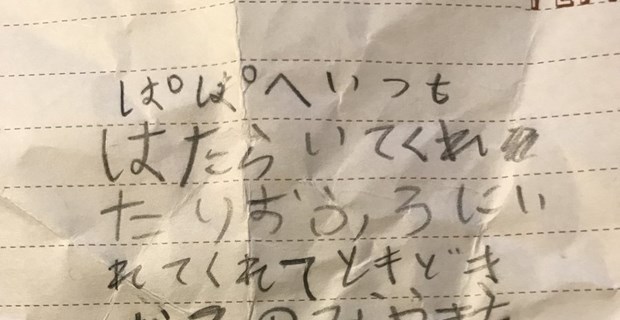 ぱぱへいつも
はたらいてくれ
たりおふろにい
れてくれてときどき